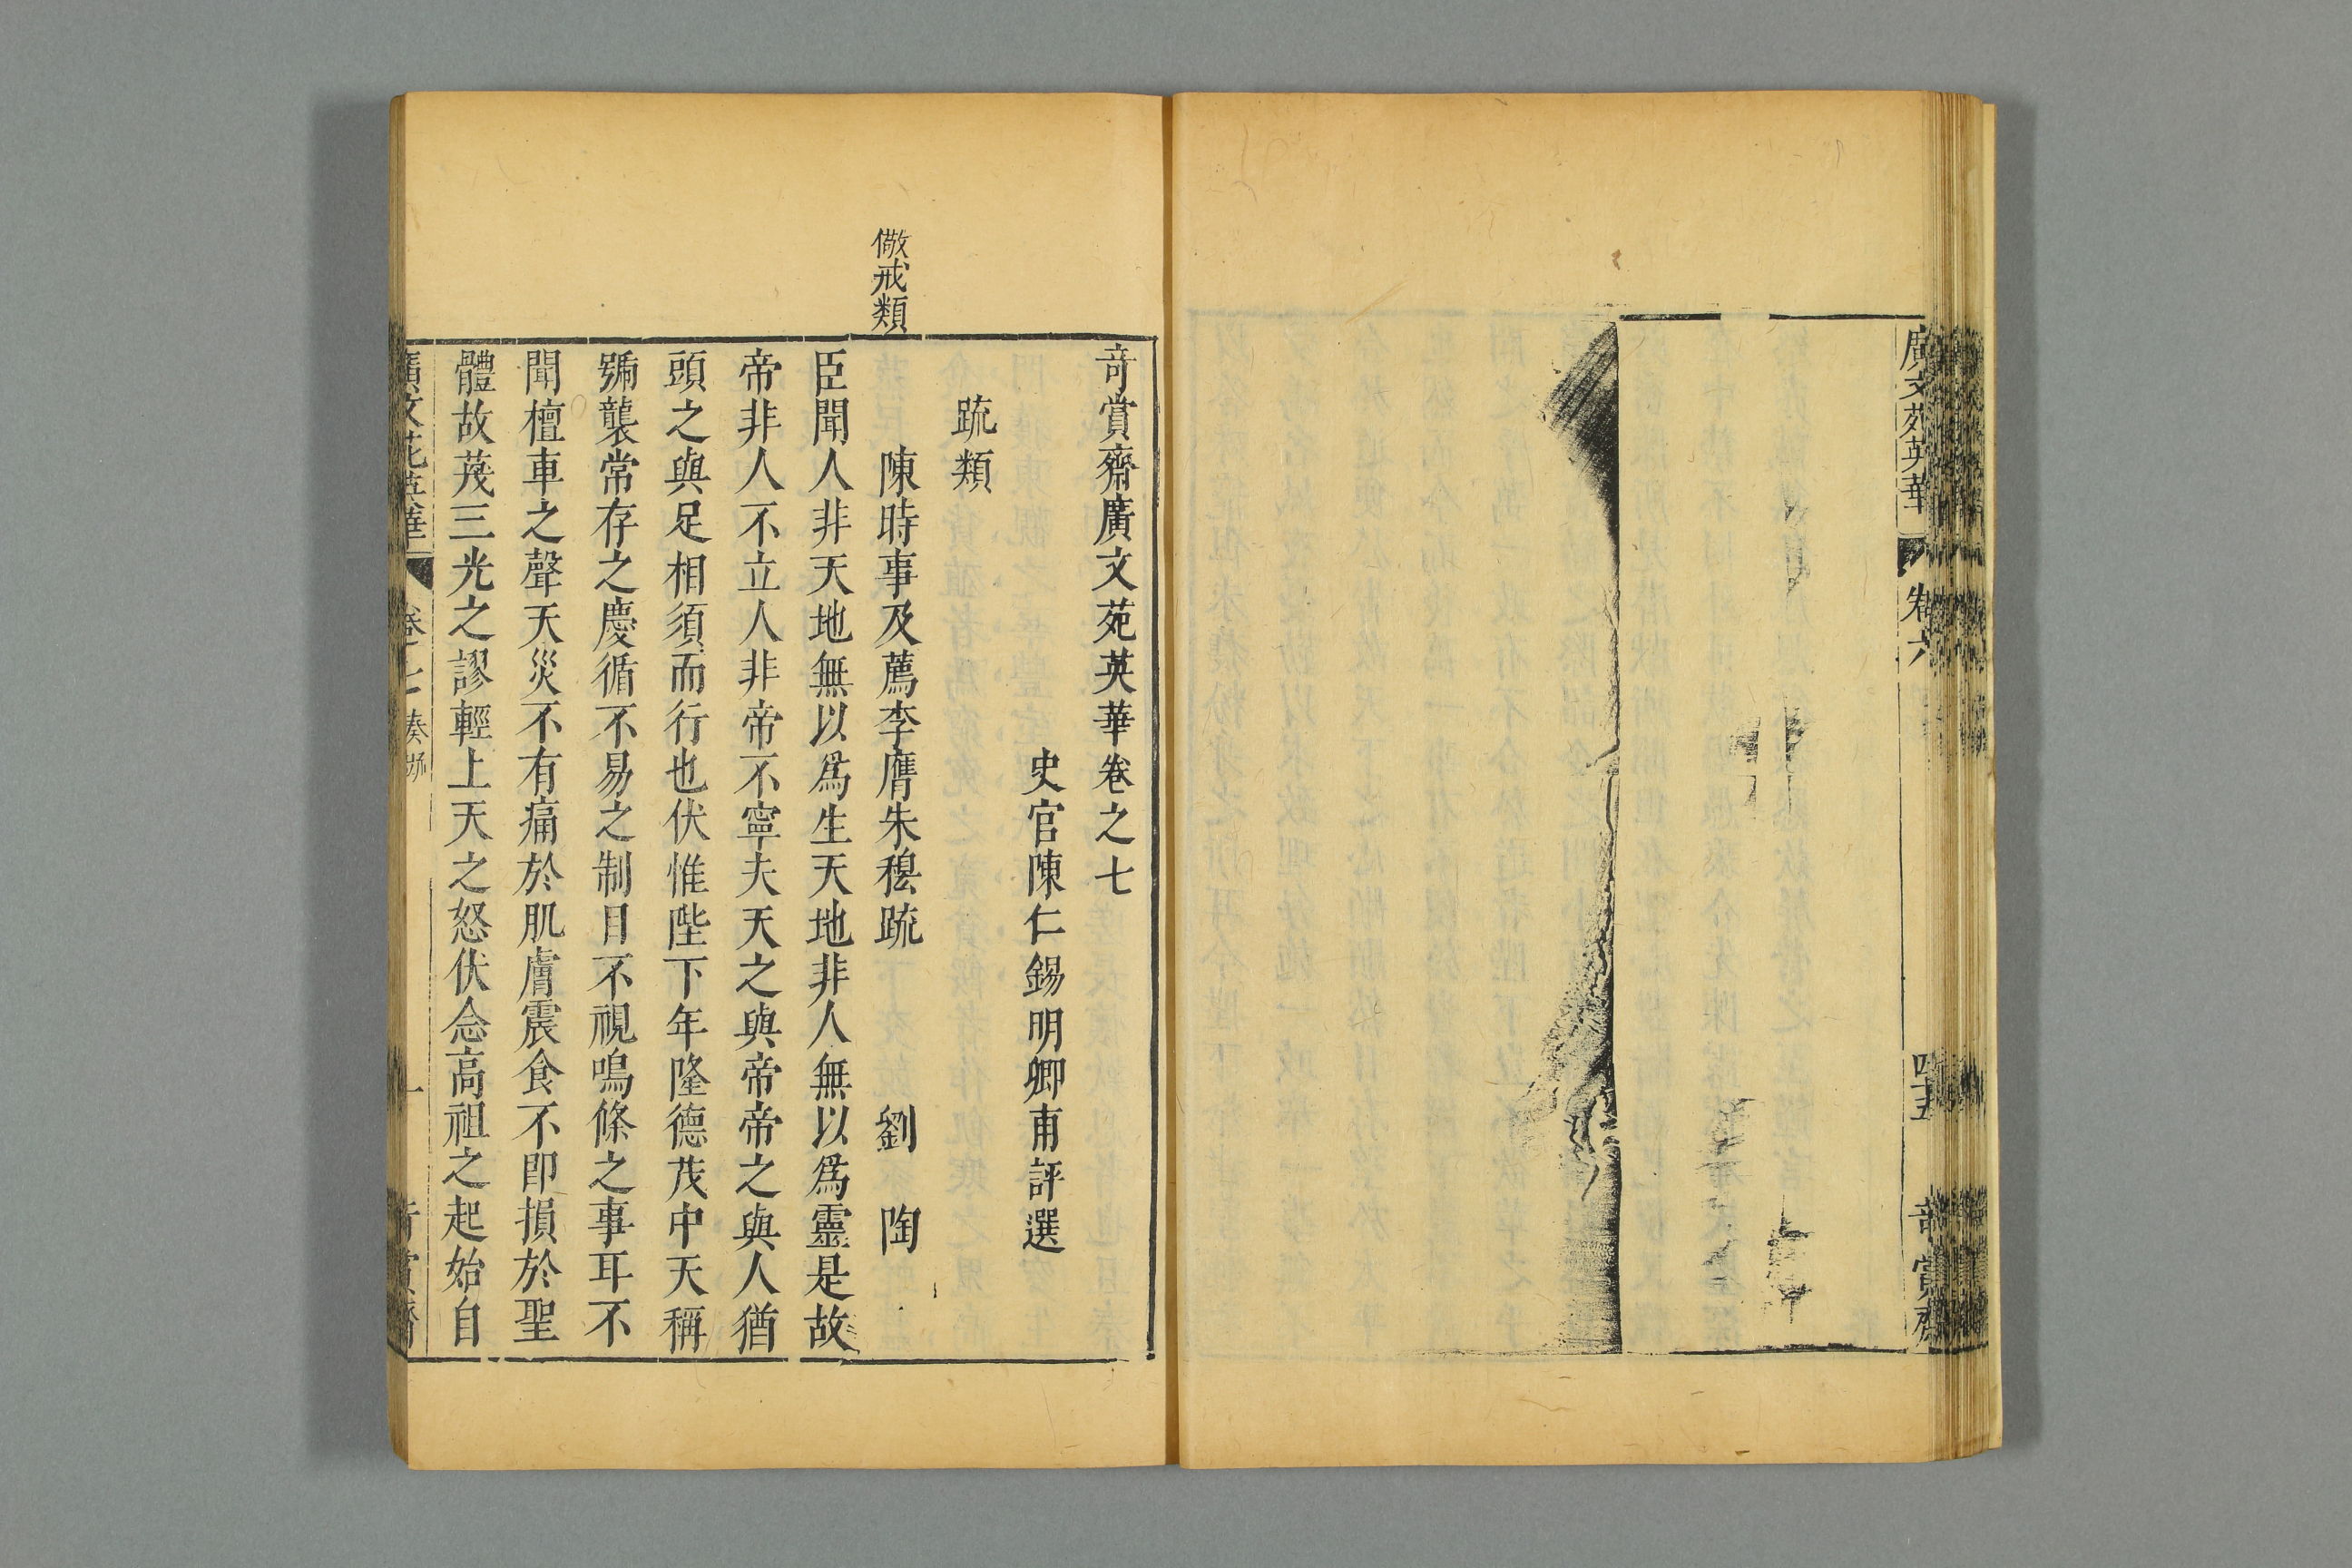 廣文苑英華
卷六
四十五
奇賞齋
奇賞齋廣文苑英華卷之七
史官陳仁錫明卿甫評選
疏類
儆戒類
陳時事及薦李膺朱穆疏 劉陶
臣聞人非天地無以爲生天地非人無以爲靈是故
帝非人不立人非帝不寧夫天之與帝帝之與人猶
頭之與足相須而行也伏惟陛下年隆德茂中天稱
號襲常存之慶循不易之制目不視鳴條之事耳不
聞檀車之聲天災不有痛於肌膚震食不卽損於聖
體故蔑三光之謬輕上天之怒伏念高祖之起始自
廣文苑英華
卷七
奏疏
一
奇賞齋